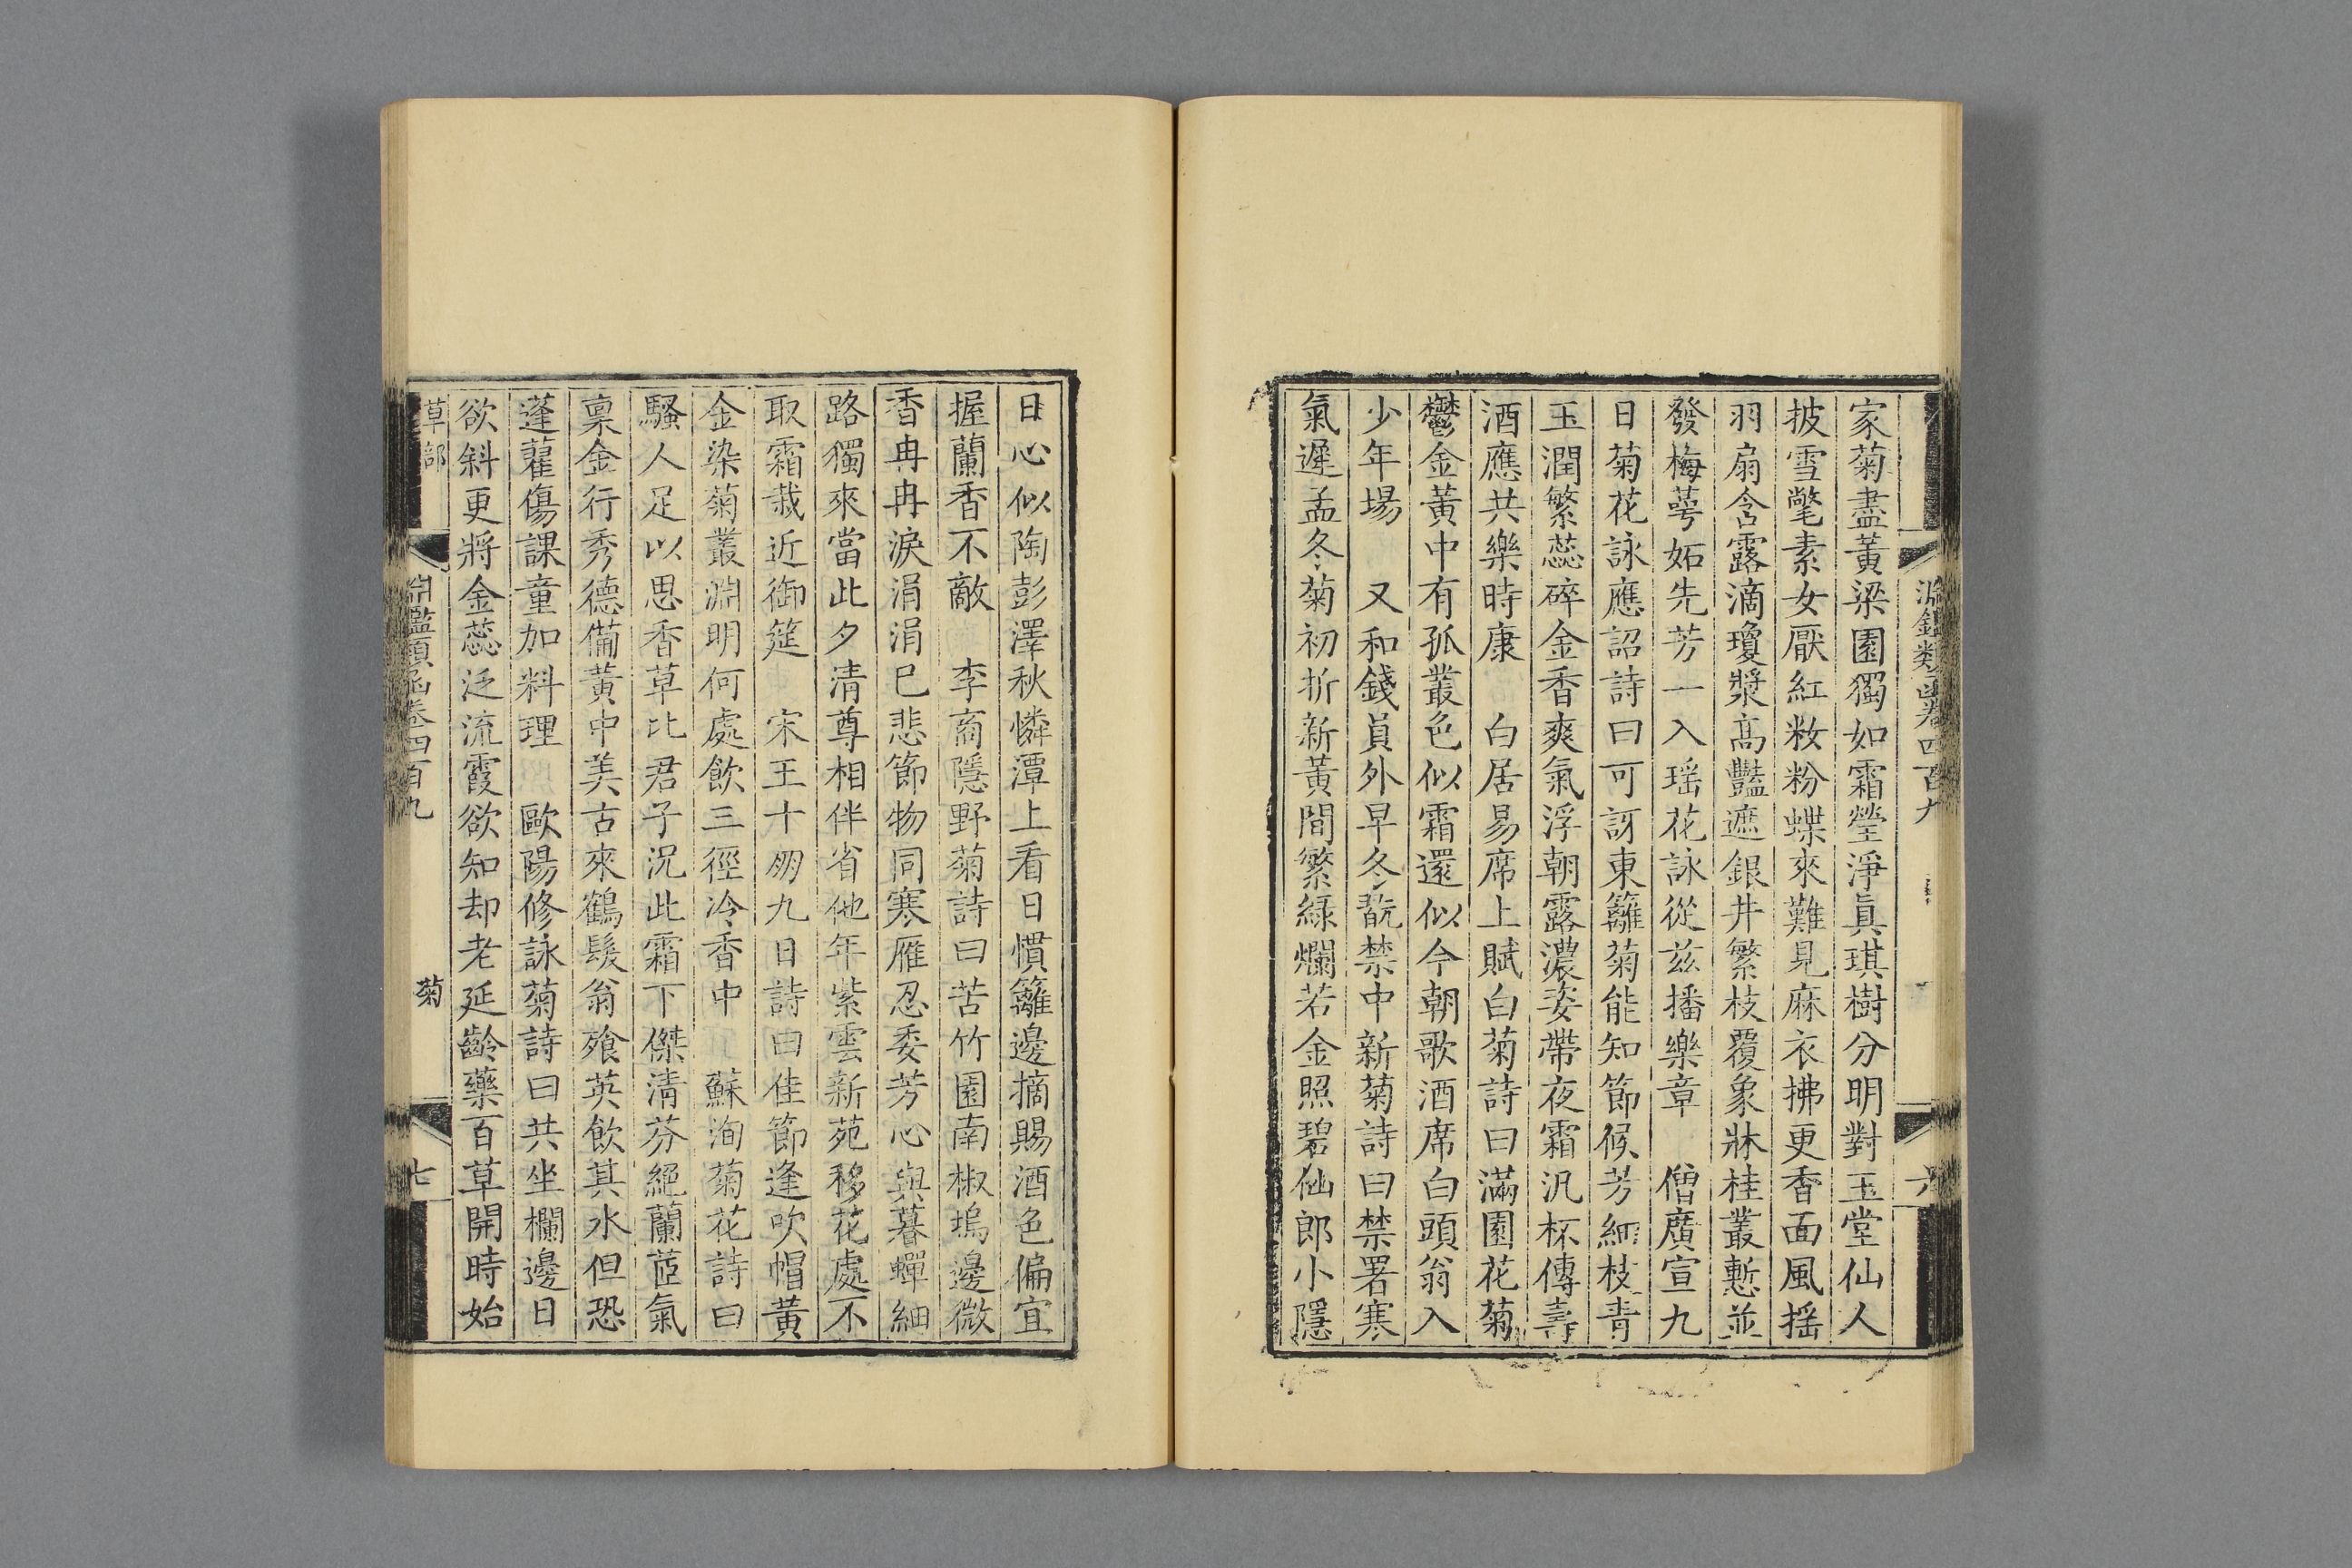 淵鑑類函卷四百九
六
家菊盡黃梁園獨如霜瑩淨眞琪樹分明對玉堂仙人
披雪氅素女厭紅粧粉蝶來難見麻衣拂更香面風搖
羽扇含露滴瓊漿高豔遮銀井繁枝覆象牀桂叢慙並
發梅萼妬先芳一入瑤花詠從兹播樂章 僧廣宣九
日菊花詠應詔詩曰可訝東籬菊能知節候芳細枝青
玉潤繁蕊碎金香爽氣浮朝露濃姿帶夜霜汎杯傳壽
酒應共樂時康 白居易席上賦白菊詩曰滿園花菊
鬱金黃中有孤叢色似霜還似今朝歌酒席白頭翁入
少年場 又和錢員外早冬翫禁中新菊詩曰禁署寒
氣遲孟冬菊初折新黃間繁綠爛若金照碧仙郎小隱
日心似陶彭澤秋憐潭上看日慣籬邊摘賜酒色偏宜
握蘭香不敵 李商隱野菊詩曰苦竹園南椒塢邊微
香冉冉淚涓涓已悲節物同寒雁忍委芳心與暮蟬細
路獨來當此夕清尊相伴省他年紫雲新苑移花處不
取霜栽近御筵 宋王十朋九日詩曰佳節逢吹帽黃
金染菊叢淵明何處飲三徑冷香中 蘇洵菊花詩曰
騷人足以思香草比君子況此霜下傑清芬絕蘭茝氣
稟金行秀德備黃中美古來鶴髮翁飱英飲其水但恐
蓬藋傷課童加料理 歐陽修詠菊詩曰共坐欄邊日
欲斜更將金蕊泛流霞欲知却老延齡藥百草開時始
草部
淵鑑類函卷四百九
菊
七